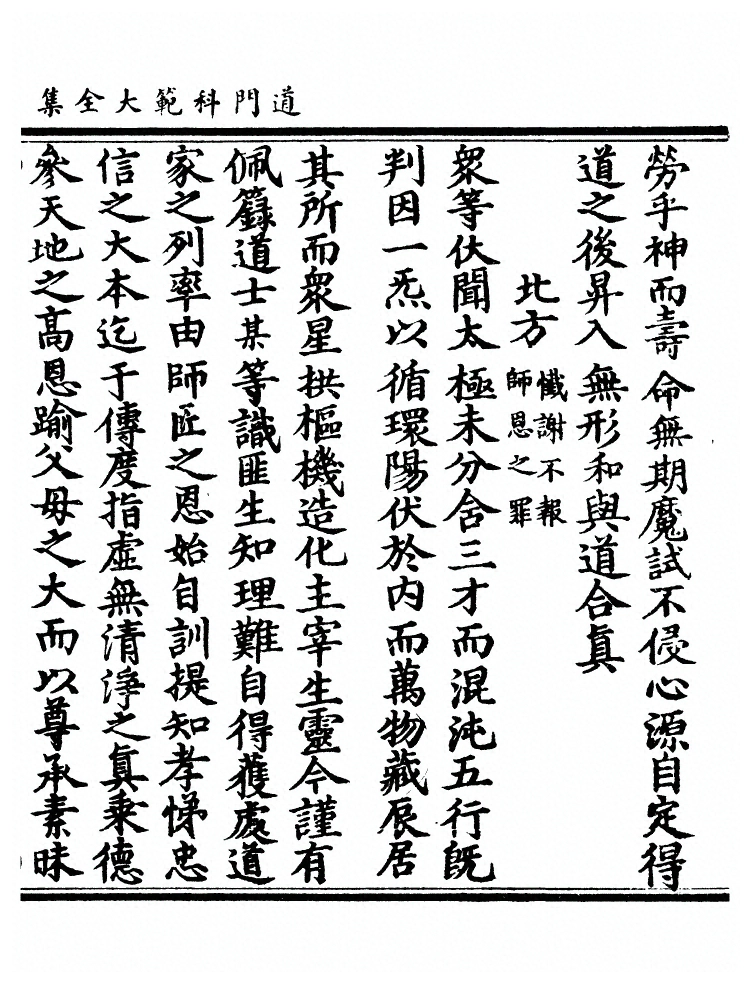 道門科範大全集
勞乎神而壽命無期魔試不侵心源自定得
道之後昇入無形和與道合眞
北方懺謝不報
師恩之罪
衆等伏聞太極未分含三才而混沌五行旣
判因一炁以循環陽伏於內而萬物藏辰居
其所而衆星拱樞機造化主宰生靈今謹有
佩籙道士某等識匪生知理難自得獲處道
家之列率由師匠之恩始自訓提知孝悌忠
信之大本迄于傳度指虛無清淨之眞乘德
參天地之高恩踰父母之大而以尊承素昧